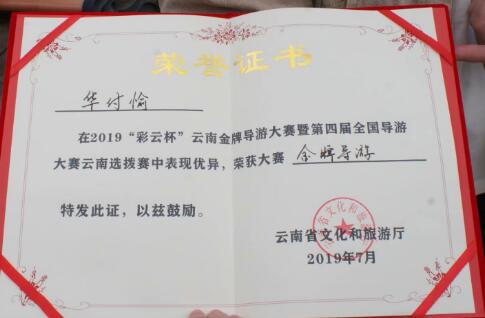 荣誉证书
华付愉
在2019“彩云杯”云南金牌导游大赛暨第四届全国导游
大赛云南选拨赛中表现优异，荣获大赛 金牌导游
特发此证，以兹鼓励。
云南省文化和旅游厅
2019年7月